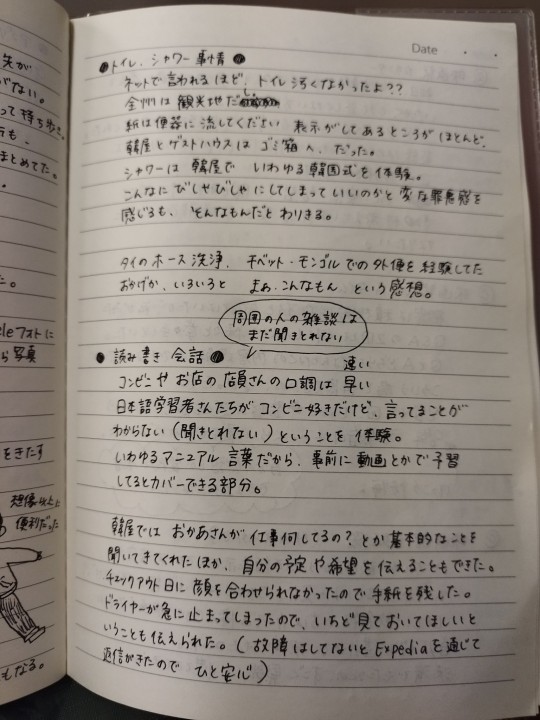 Date ・ ・
●トイレ、シャワー事情●
ネットで言われるほど、トイレ汚くなかったよ??
全州は観光地だし
紙は便器に流してください 表示がしてあるところがほとんど。
韓屋とゲストハウスは ゴミ箱へ、だった。
シャワーは 韓屋で いわゆる韓国式を体験。
こんなに びしゃびしゃ にしてしまって いいのかと 変な罪悪感を
感じるも、そんなもんだと わりきる。
タイのホース洗浄、チベット・モンゴルでの外便を経験してた
おかげか、いろいろと まぁ、こんなもん という感想。
周囲の人の雑談は
まだ聞きとれない
●読み書き 会話●
速い
コンビニや お店の 店員さんの口調は 早い
日本語学習者さんたちが コンビニ好きだけど、言ってることが
わからない(聞きとれない)ということを 体験。
いわゆるマニュアル 言葉だから、事前に動画とかで予習
してるとカバーできる部分。
韓屋では おかあさんが 仕事何してるの? とか基本的なことを
聞いてきてくれたほか、自分の予定や希望を伝えることもできた。
チェックアウト日に顔を合わせられなかったので 手紙を残した。
ドライヤーが急に止まってしまったので、いちど見ておいてほしいと
いうことも伝えられた。(故障はしてないとExpediaを通じて
返信がきたので ひと安心)
先が
がない。
って持ち歩き。
まとめてた。
た。
leフォトに
ら写真
をきたす
想像以上に
便利だった
もなる。